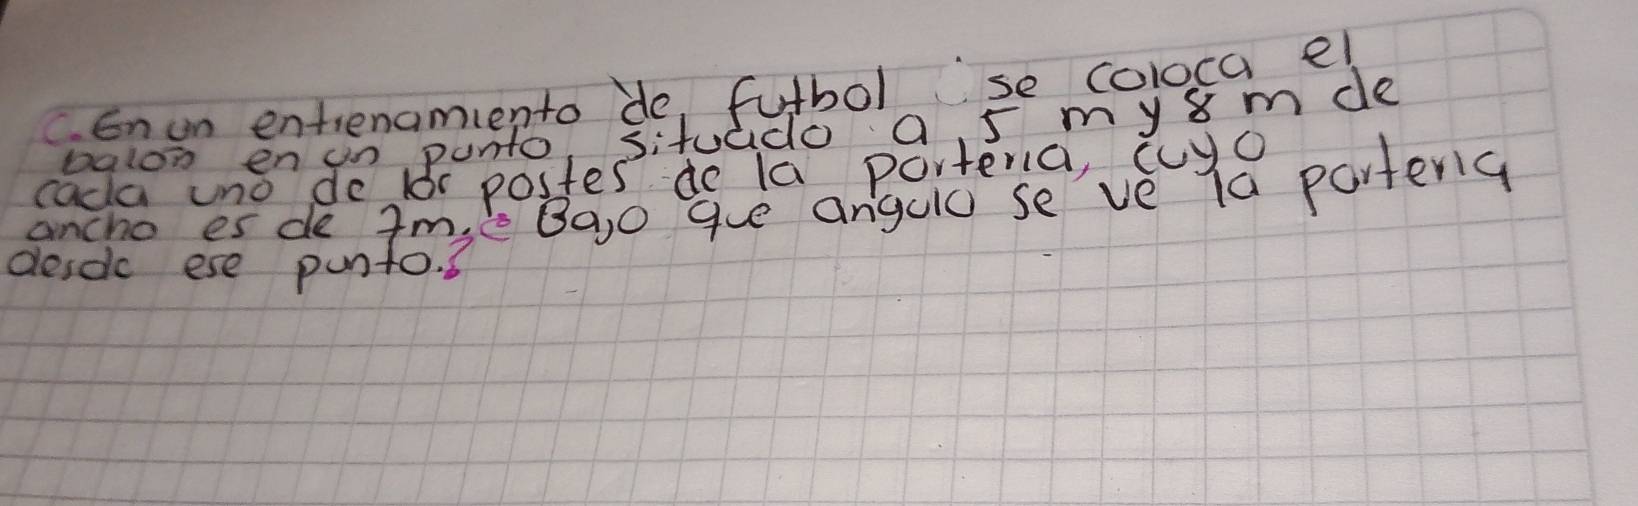 C. En un entrenamiento de futbol se coloca el
balon en un punto situado a 5 m y 8 m de
cada uno de los postes de la porteria, cuyo
ancho es de 7m. ¿ Bajo que angulo se ve la porteria
desde ese punto.?